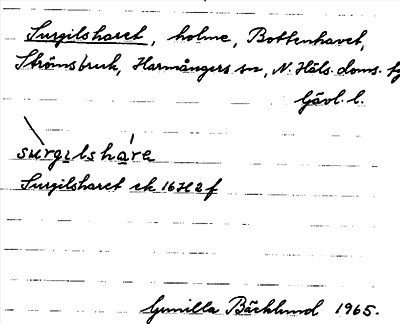 Surgilsharet, holme, Bottenhavet,
Strömsbruk, Harmångers sn, N. Häls. doms.
Gävl. l.
surgilshare
Surgilsharet ek 16H2f
Gunilla Bäcklund 1965.